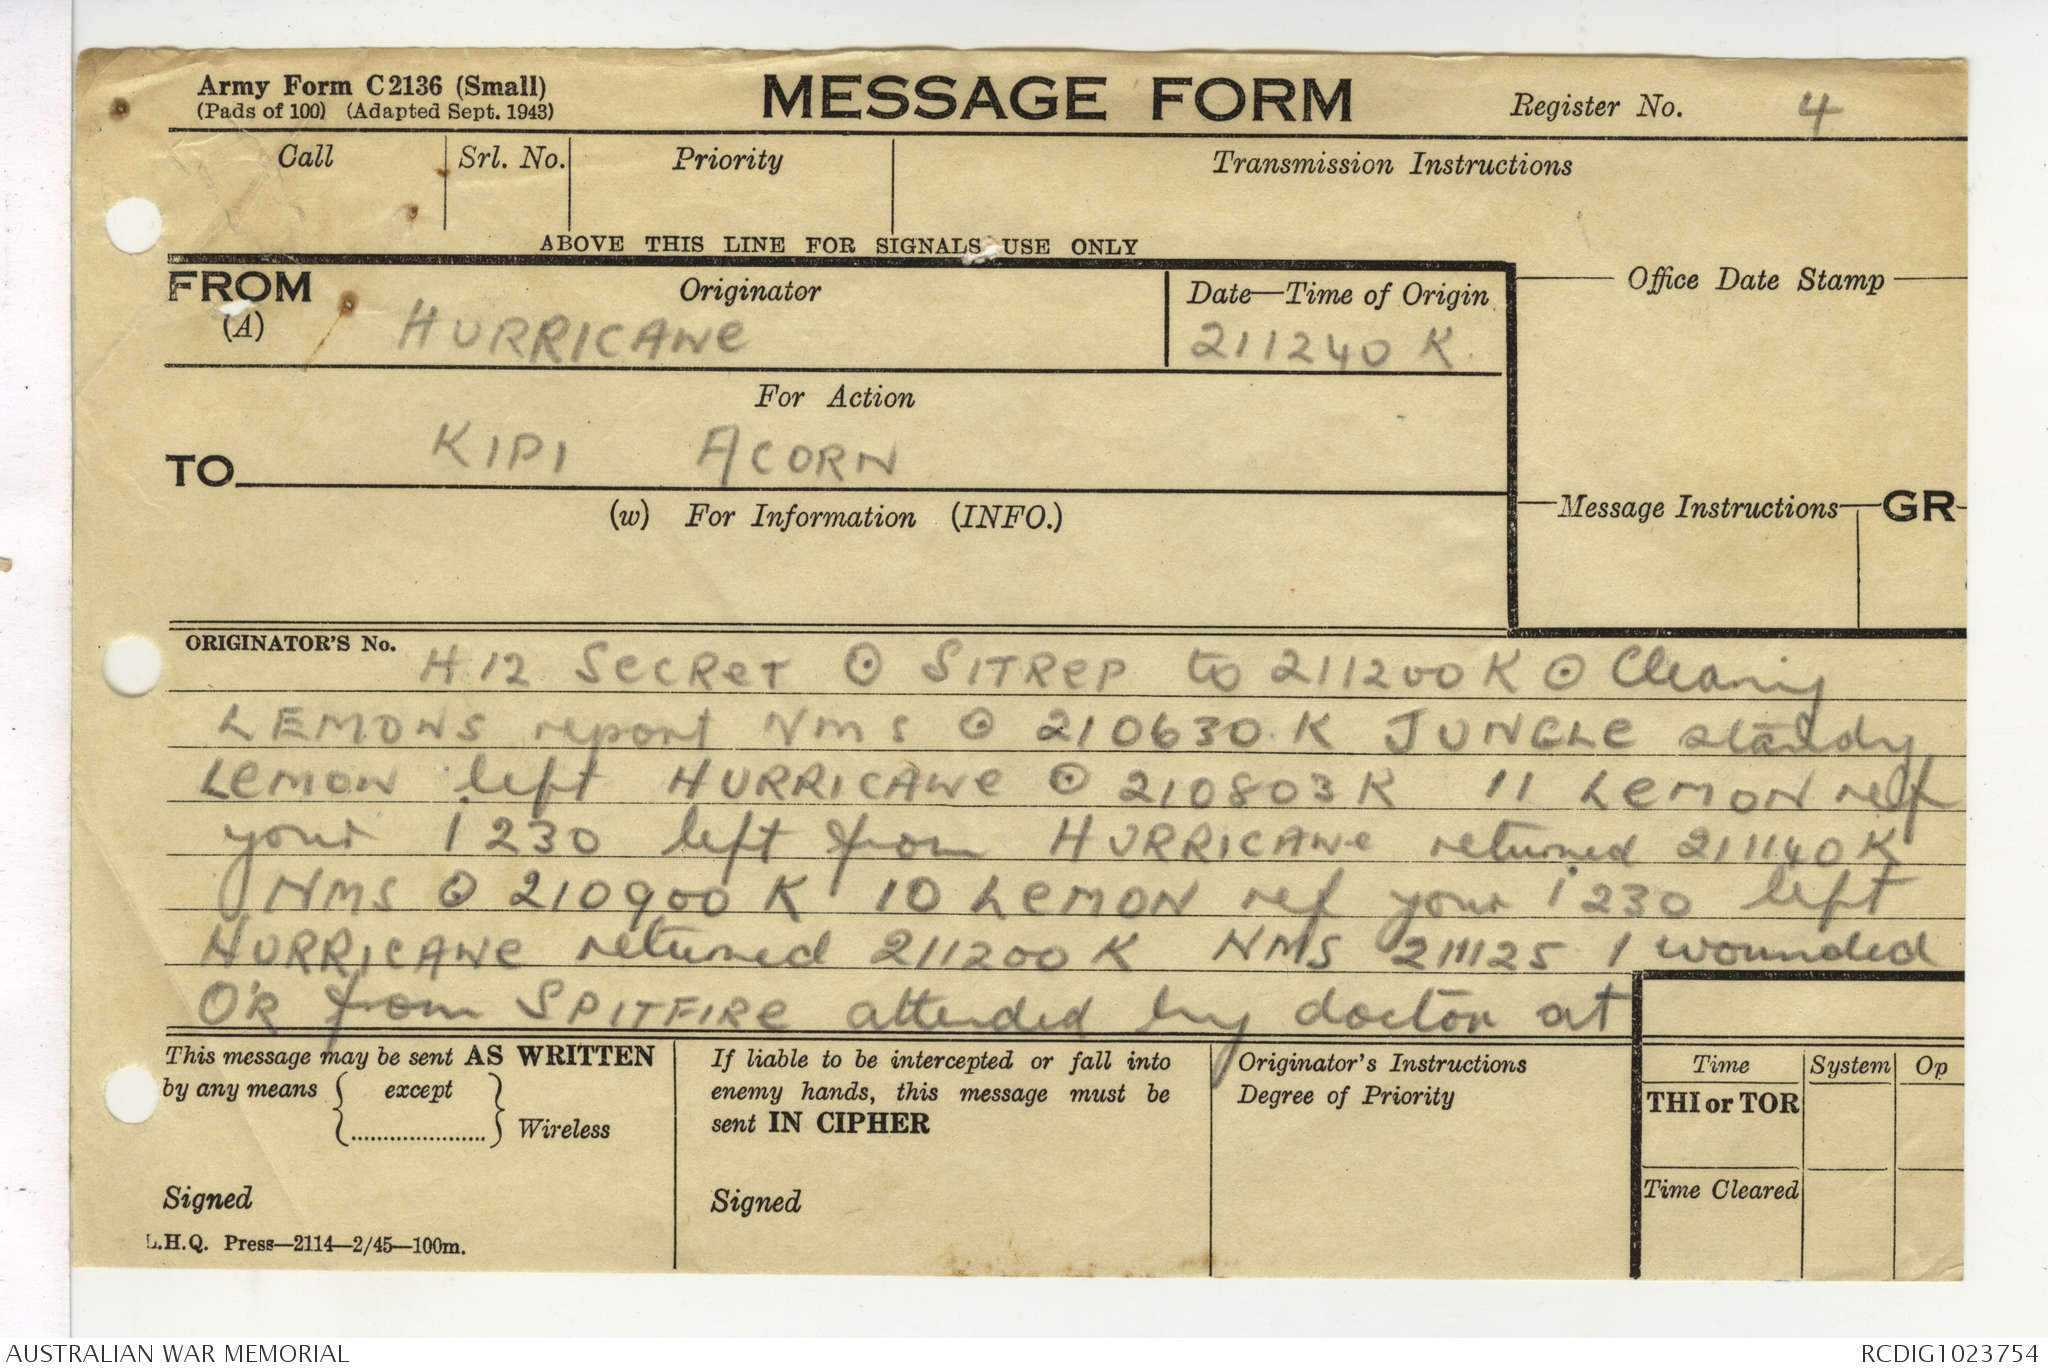 Army Form C2136 (Small)
(Pads of 100) (Adapted Sept. 1943)
MESSAGE FORM
Register No. 4
Call
Srl. No.
Priority
Transmission Instructions
ABOVE THIS LINE FOR SIGNALS USE ONLY
FROM
(A)
Originator
HURRICANE
Date—Time of Origin
211240 K.
Office Date Stamp
For Action
TO
KIPI ACORN
(w) For Information (INFO.)
Message Instructions
GR
ORIGINATOR'S No.
H12 SECRET ⊙ SITREP to 211200 K ⊙ Clearing
LEMONS report NMS ⊙ 210630 K JUNGLE standby
LEMON left HURRICANE ⊙ 210803 K 11 LEMON ref
your 1230 left from HURRICANE returned 211140 K
NMS ⊙ 210900 K 10 LEMON ref your 1230 left
HURRICANE returned 211200 K NMS 211125 1 wounded
O'R from SPITFIRE attended by doctor at
This message may be sent AS WRITTEN
by any means { except
...................... } Wireless
Signed
L.H.Q. Press—2114—2/45—100m.
If liable to be intercepted or fall into
enemy hands, this message must be
sent IN CIPHER
Signed
Originator's Instructions
Degree of Priority
Time
System
Op
THI or TOR
Time Cleared
AUSTRALIAN WAR MEMORIAL
RCDIG1023754